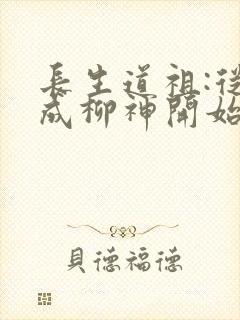 長生道祖:從
成柳神開始
貝德福德